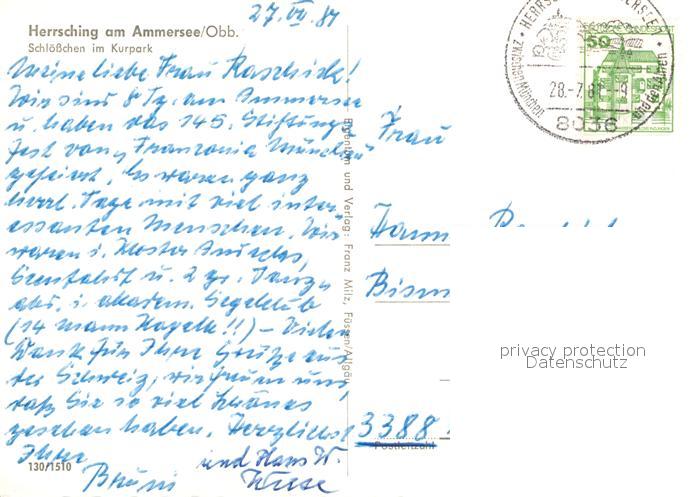 27.VII.81
Herrsching am Ammersee/Obb.
Schlößchen im Kurpark
Meine liebe Frau Raschick!
Wir sind 8 Tg. am Ammersee
u. haben das 145. Stiftungs
fest von Franconia München
gefeiert. Es waren ganz
herrl. Tage mit viel inter
essanten Menschen. Wir
waren i. Kloster Andechs,
Seenfahrt u. 2 gr. Tanz
abd. i. akadem. Segelclub
(14 Mann Kapelle!!) – Vielen
Dank für Ihre Grüße aus
der Schweiz, wir freuen uns,
daß Sie so viel Schönes
gesehen haben. Herzlichst
Ihre
und Hans W.
Wiese
130/1510
Eigentum und Verlag: Franz Milz, Füssen/Allgäu
50
zwischen München
und den Alpen
28.-7.81
8036
Frau
Hann
Bism
3388
Postleitzahl
privacy protection
Datenschutz